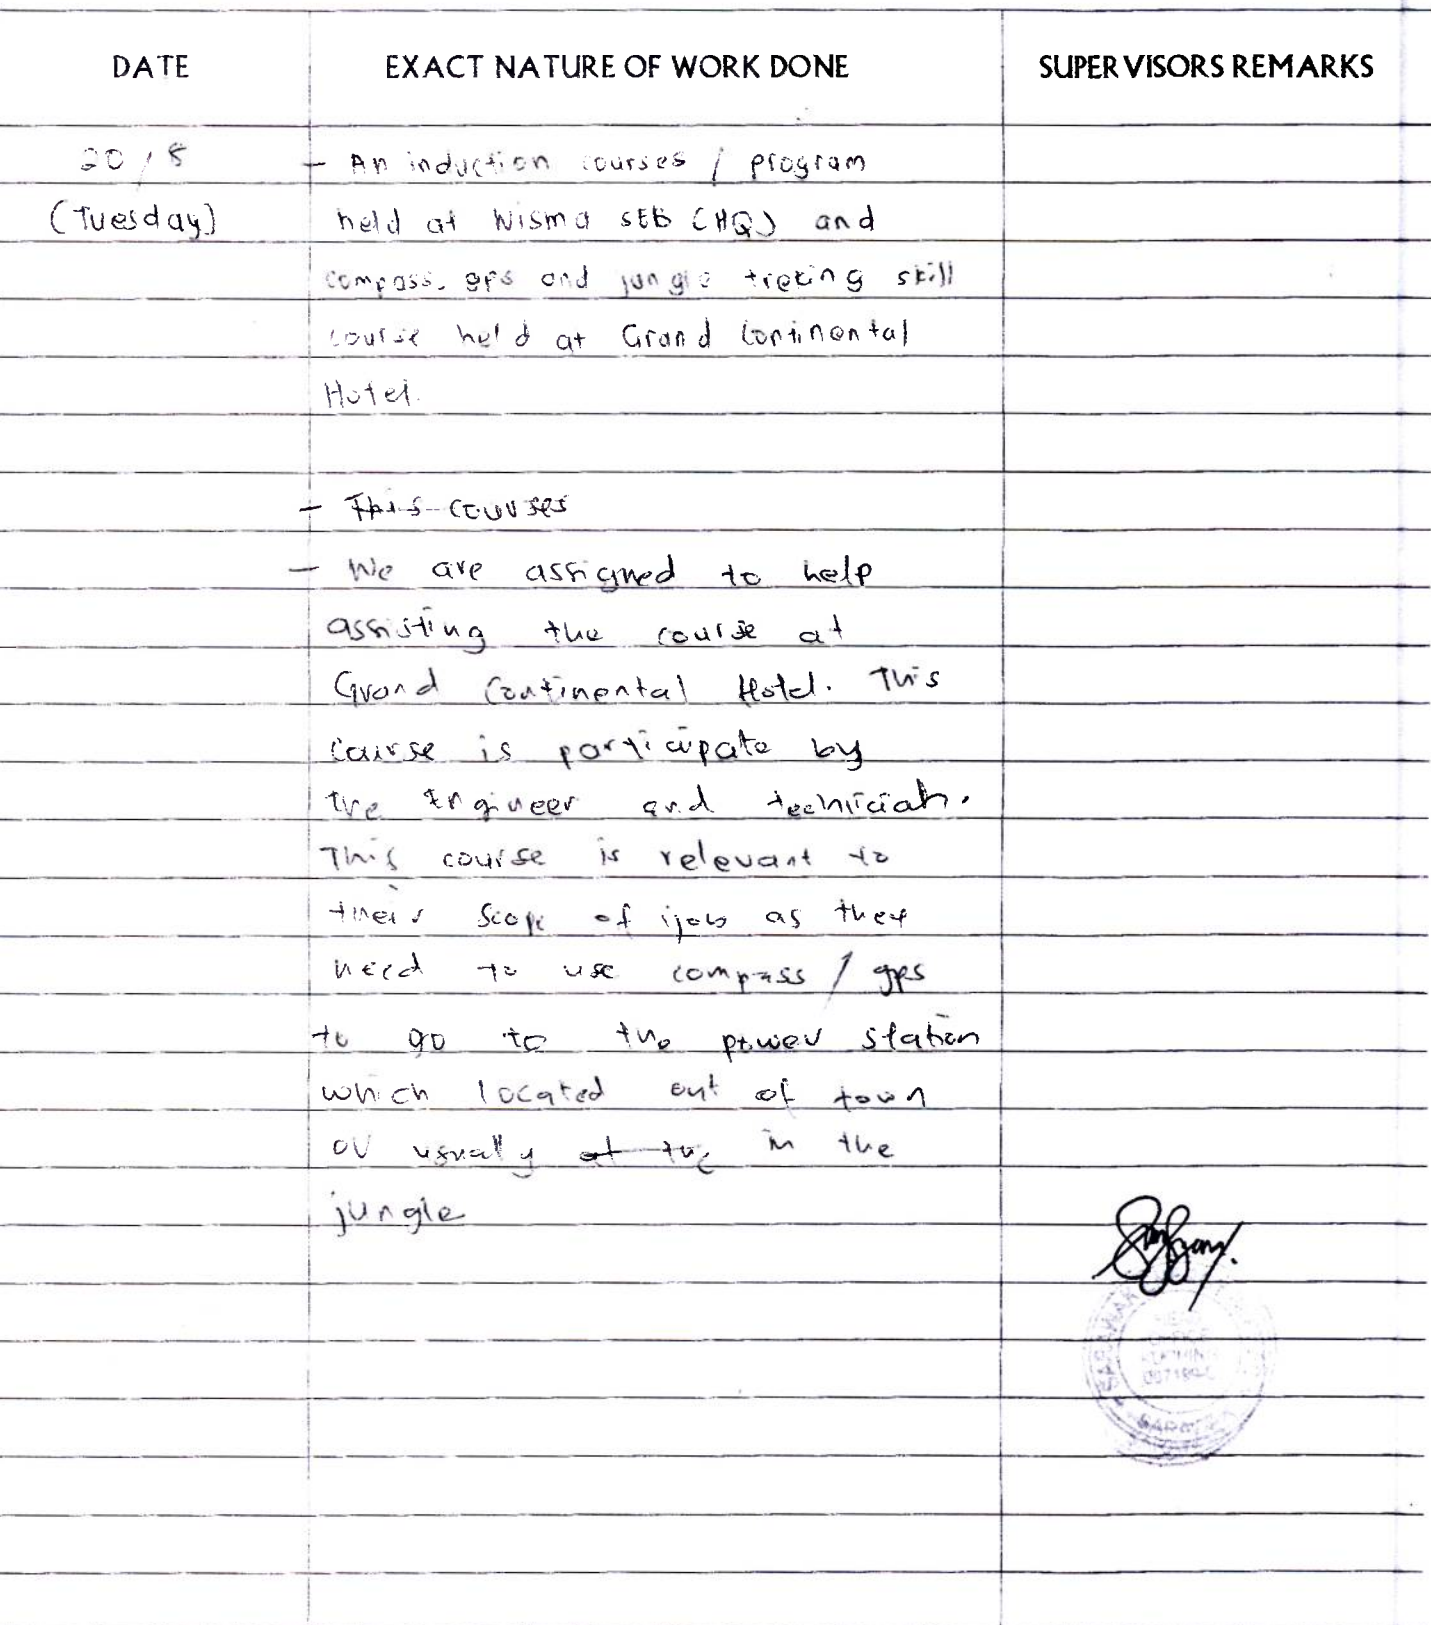 DATE EXACT NATURE OF WORK DONE SUPERVISORS REMARKS
20 / 8 - An induction courses / program
(Tuesday) held at Wisma SEB (HQ) and
compass, gps and jungle treking skill
course held at Grand Continental
Hotel.
- This courses
- We are assigned to help
assisting the course at
Grand Continental Hotel. This
course is participate by
the Engineer and technician.
This course is relevant to
their scope of job as they
need to use compass / gps
to go to the power station
which located out of town
or usually at the in the
jungle
SARAWAK